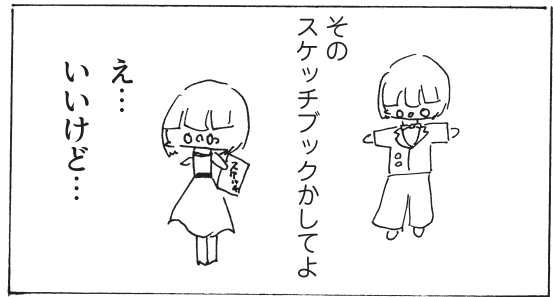 その
スケッチブックかしてよ
え…
いいけど…
スケッチ